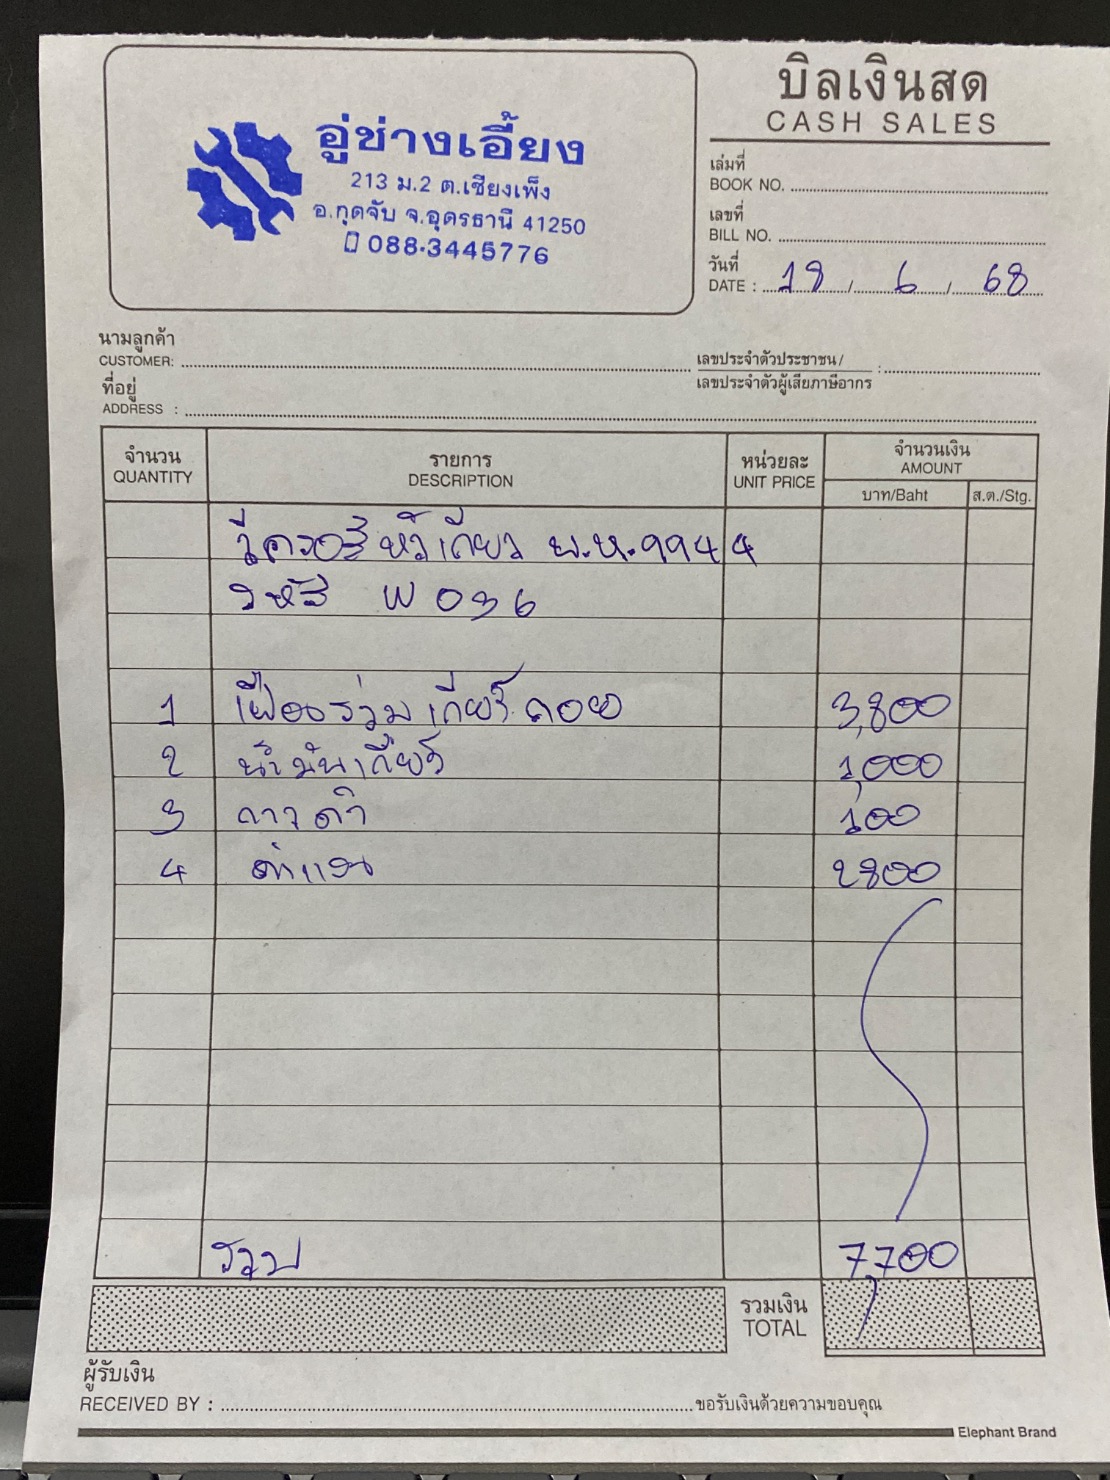 บิลเงินสด
CASH SALES
อู่ช่างเอี้ยง
213 ม.2 ต.เชียงเพ็ง
อ.กุดจับ จ.อุดรธานี 41250
088-3445776
เล่มที่
BOOK NO.
เลขที่
BILL NO.
วันที่
DATE : 18 / 6 / 68
นามลูกค้า
CUSTOMER:
เลขประจำตัวประชาชน/
เลขประจำตัวผู้เสียภาษีอากร :
ที่อยู่
ADDRESS :
จำนวน รายการ หน่วยละ จำนวนเงิน
QUANTITY DESCRIPTION UNIT PRICE AMOUNT
บาท/Baht ส.ต./Stg.
หัวเดียว 9944
รหัส W 036
1 เฟืองร่วมเกียร์ถอย 3,800
2 น้ำมันเกียร์ 1,000
3 กาวดำ 100
4 ค่าแรง 2800
รวม 7,700
รวมเงิน
TOTAL
ผู้รับเงิน
RECEIVED BY : ขอรับเงินด้วยความขอบคุณ
Elephant Brand